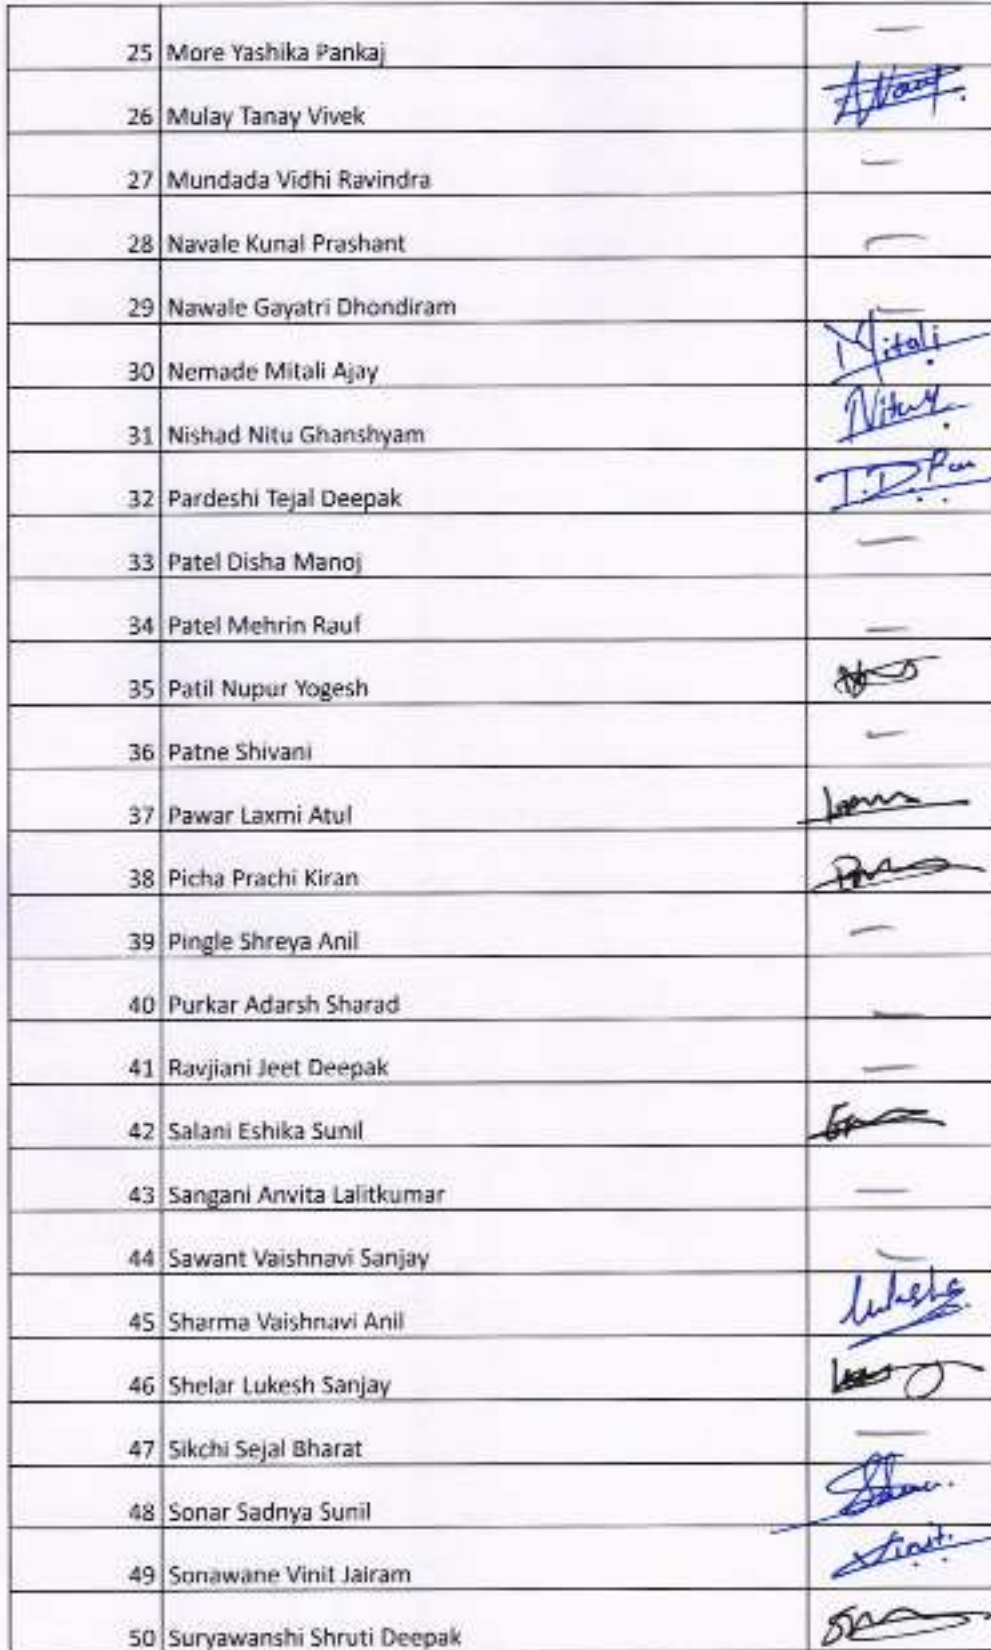 25 More Yashika Pankaj —
26 Mulay Tanay Vivek
27 Mundada Vidhi Ravindra —
28 Navale Kunal Prashant —
29 Nawale Gayatri Dhondiram —
30 Nemade Mitali Ajay Mitali
31 Nishad Nitu Ghanshyam
32 Pardeshi Tejal Deepak T.D.
33 Patel Disha Manoj —
34 Patel Mehrin Rauf —
35 Patil Nupur Yogesh
36 Patne Shivani —
37 Pawar Laxmi Atul
38 Picha Prachi Kiran
39 Pingle Shreya Anil —
40 Purkar Adarsh Sharad —
41 Ravjiani Jeet Deepak —
42 Salani Eshika Sunil
43 Sangani Anvita Lalitkumar —
44 Sawant Vaishnavi Sanjay —
45 Sharma Vaishnavi Anil
46 Shelar Lukesh Sanjay
47 Sikchi Sejal Bharat —
48 Sonar Sadnya Sunil
49 Sonawane Vinit Jairam Vinit.
50 Suryawanshi Shruti Deepak